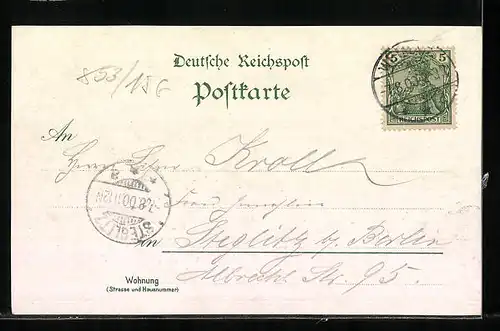 853/156
Deutsche Reichspost
Postkarte
5 5
REICHSPOST
An
Herrn Kroll
STEGLITZ
7.8.00.11-12V
in Steglitz b/ Berlin
Albrecht Str. 95.
Wohnung
(Strasse und Hausnummer)